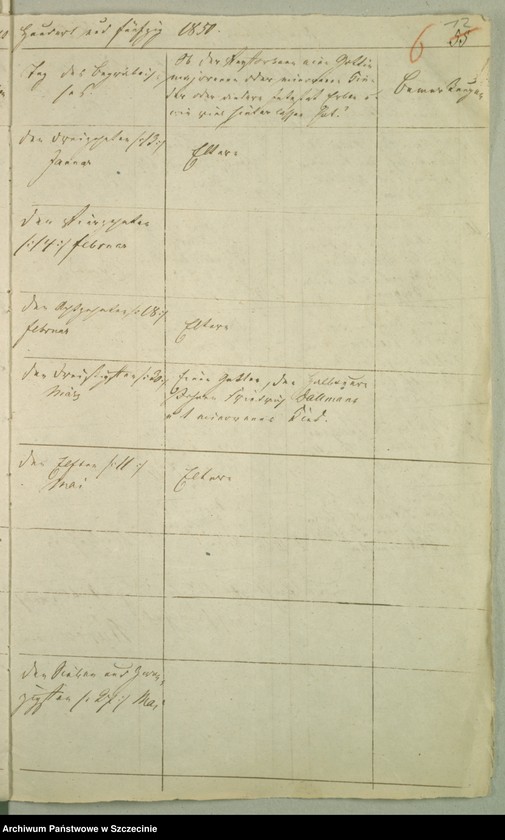 Hundert und fünfzig 1850.
12
6 55
Tag des Begräbnis=
ses
Ob der Verstorbene einen Gatten
majorenne oder minorenne Kin-
der oder andere Erben
wie viel hinterlassen hat?
Bemerkungen
den dreizehnten /:13:/
Januar
Eltern
den Vierzehnten
/:14:/ Februar
den Achtzehnten /:18:/
Februar
Eltern
den dreißigsten /:30:/
März
Einen Gatten, den
Johann Friedrich Dallmann
und minorennes Kind.
den Elften /:11:/
Mai
Eltern
den Sieben und Zwan-
zigsten /:27:/ Mai
Archiwum Państwowe w Szczecinie